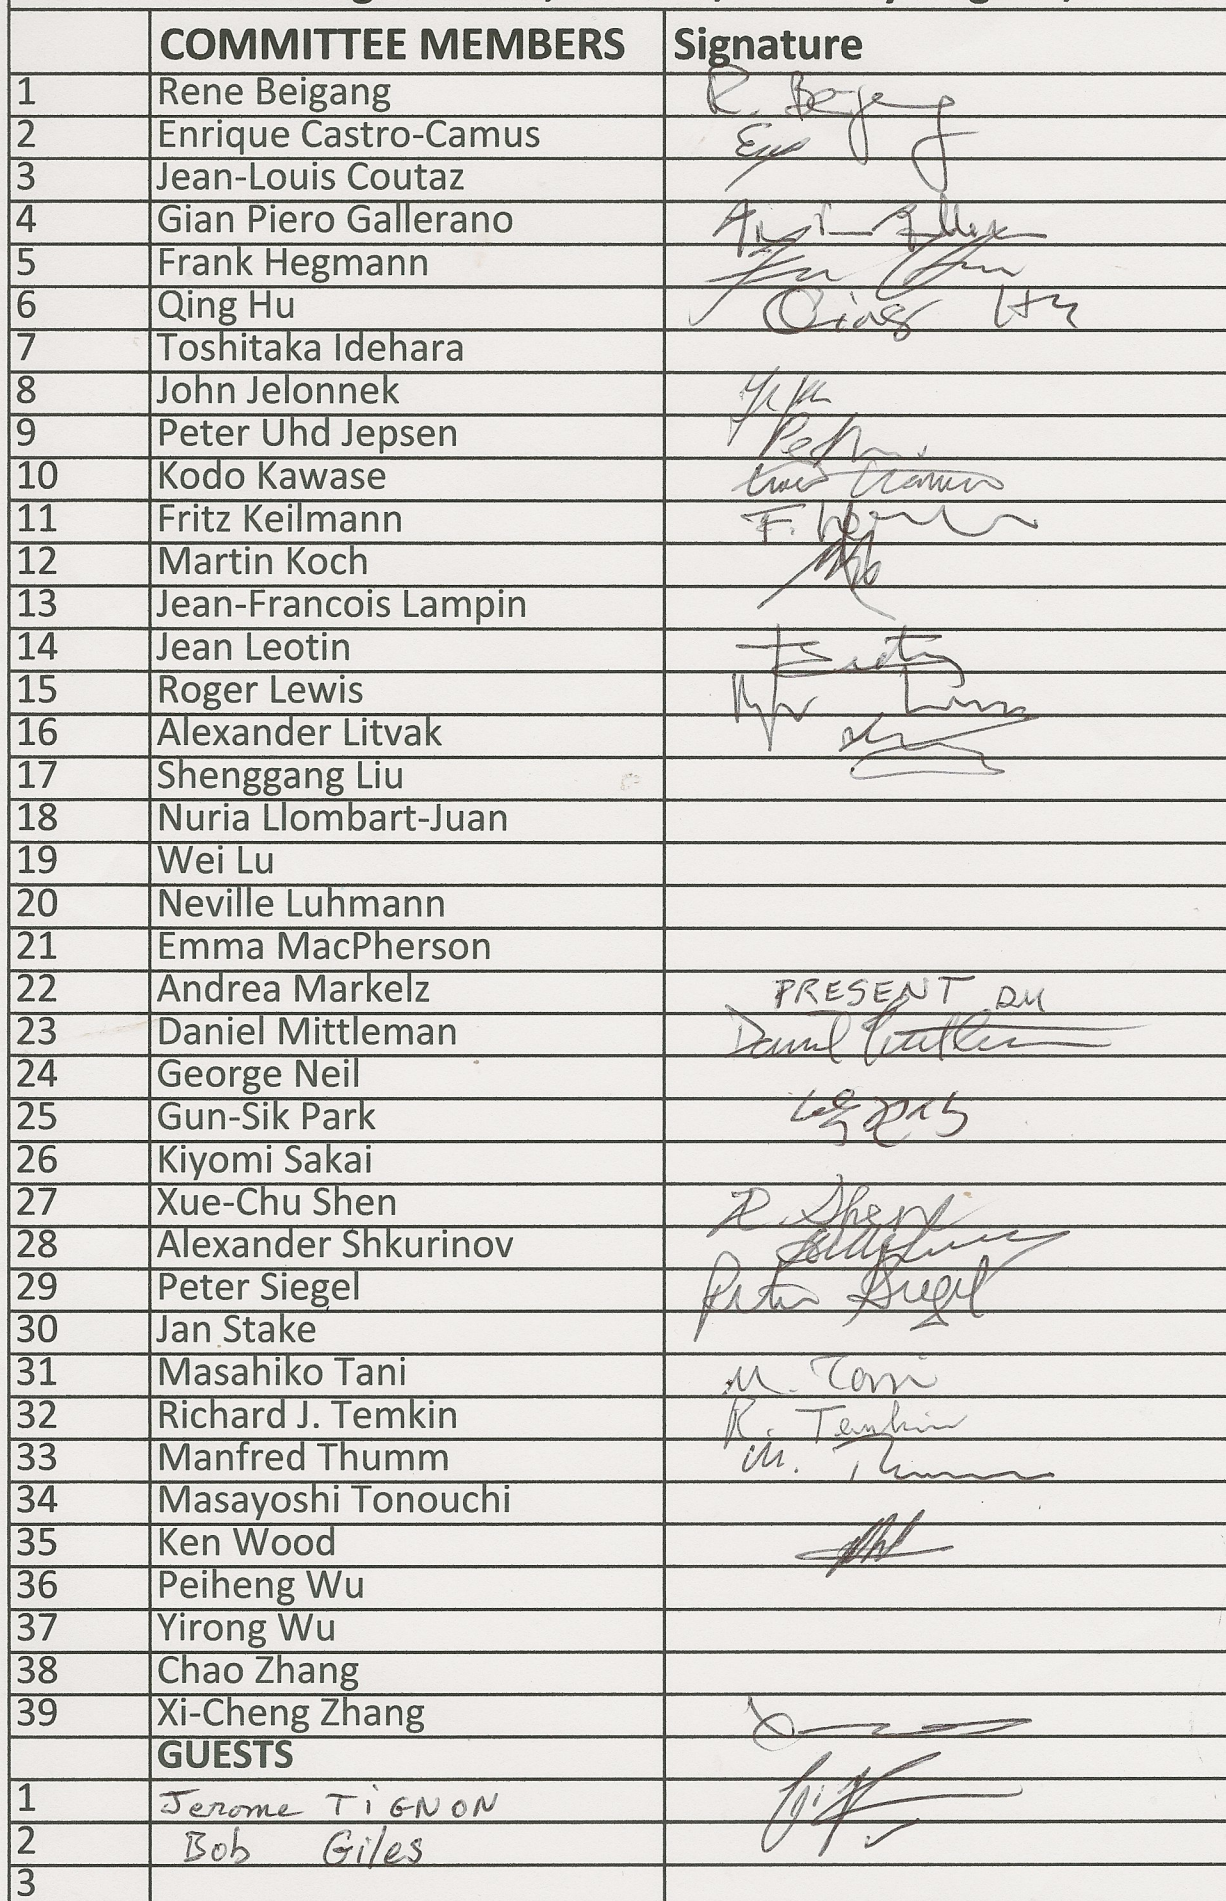 COMMITTEE MEMBERS Signature
1 Rene Beigang R. Beigang
2 Enrique Castro-Camus
3 Jean-Louis Coutaz
4 Gian Piero Gallerano
5 Frank Hegmann
6 Qing Hu Qing Hu
7 Toshitaka Idehara
8 John Jelonnek
9 Peter Uhd Jepsen
10 Kodo Kawase
11 Fritz Keilmann
12 Martin Koch
13 Jean-Francois Lampin
14 Jean Leotin
15 Roger Lewis
16 Alexander Litvak
17 Shenggang Liu
18 Nuria Llombart-Juan
19 Wei Lu
20 Neville Luhmann
21 Emma MacPherson
22 Andrea Markelz PRESENT DM
23 Daniel Mittleman Daniel Mittleman
24 George Neil
25 Gun-Sik Park
26 Kiyomi Sakai
27 Xue-Chu Shen X. Shen
28 Alexander Shkurinov
29 Peter Siegel Peter Siegel
30 Jan Stake
31 Masahiko Tani M. Tani
32 Richard J. Temkin R. Temkin
33 Manfred Thumm M. Thumm
34 Masayoshi Tonouchi
35 Ken Wood
36 Peiheng Wu
37 Yirong Wu
38 Chao Zhang
39 Xi-Cheng Zhang
GUESTS
1 Jerome TIGNON
2 Bob Giles
3